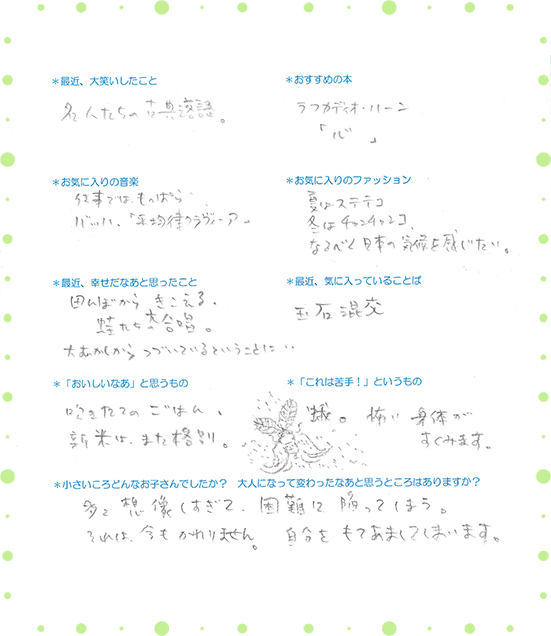 ＊最近、大笑いしたこと
名人たちの古典落語。
＊おすすめの本
ラフカディオ・ハーン
「心　」
＊お気に入りの音楽
仕事では、もっぱら
バッハ、「平均律クラヴィーア」
＊お気に入りのファッション
夏はステテコ
冬はチャンチャンコ、
なるべく日本の気候を感じたい。
＊最近、幸せだなあと思ったこと
田んぼから きこえる、
蛙たちの大合唱。
大むかしから つづいているということに‥
＊最近、気に入っていることば
玉石混交
＊「おいしいなあ」と思うもの
炊きたての ごはん、
新米は、また格別。
＊「これは苦手！」というもの
蛾。怖い 身体が
すくみます。
＊小さいころどんなお子さんでしたか？　大人になって変わったなあと思うところはありますか？
多々 想像しすぎて、困難に 陥ってしまう。
それは、今も かわりません。 自分を もてあましてしまいます。